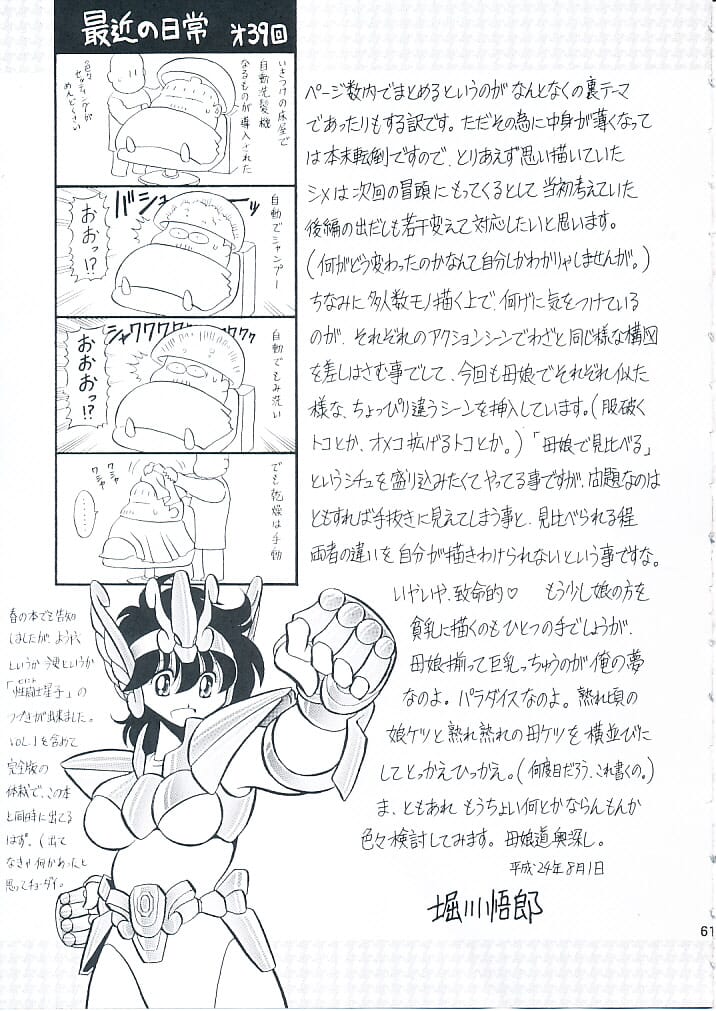 最近の日常 第39回
いきつけの床屋で
自動洗髪機
なるものが導入された
色々
セッティングが
めんどくさい
自動でシャンプー
バシューーッ
おおっ!?
自動でもみ洗い
シャワワワワワワワワ
おおおっ!?
でも乾燥は手動
ワシャ
ワシャ
……
ページ数内でまとめるというのがなんとなくの裏テーマ
であったりもする訳です。ただその為に中身が薄くなって
は本末転倒ですので、とりあえず思い描いていた
シメは次回の冒頭にもってくるとして当初考えていた
後編の出だしも若干変えて対応したいと思います。
(何がどう変わったのかなんて自分しかわかりゃしませんが。)
ちなみに多人数モノ描く上で、何げに気をつけている
のが、それぞれのアクションシーンでわざと同じ様な構図
を差しはさむ事でして、今回も母娘でそれぞれ似た
様な、ちょっぴり違うシーンを挿入しています。(服破く
トコとか、オメコ拡げるトコとか。)「母娘で見比べる」
というシチュを盛り込みたくてやってる事ですが、問題なのは
ともすれば手抜きに見えてしまう事と、見比べられる程
両者の違いを自分が描きわけられないという事ですな。
いやいや、致命的♡ もう少し娘の方を
貧乳に描くのもひとつの手でしょうが、
母娘揃って巨乳っちゅうのが俺の夢
なのよ。パラダイスなのよ。熟れ頃の
娘ケツと熟れ熟れの母ケツを横並びに
してとっかえひっかえ。(何度目だろう、これ書くの。)
ま、ともあれもうちょい何とかならんもんか
色々検討してみます。母娘道奥深し。
平成24年8月1日
堀川悟郎
春の本でも告知
はしたが、ようやく
というか今更というか
「性闘士星子」の
つづきが出来ました。
VOL.1を含めて
完全版の
体裁で、この本
と同時に出てる
はず。(出て
なきゃ何かあったと
思ってチョーダイ。
61